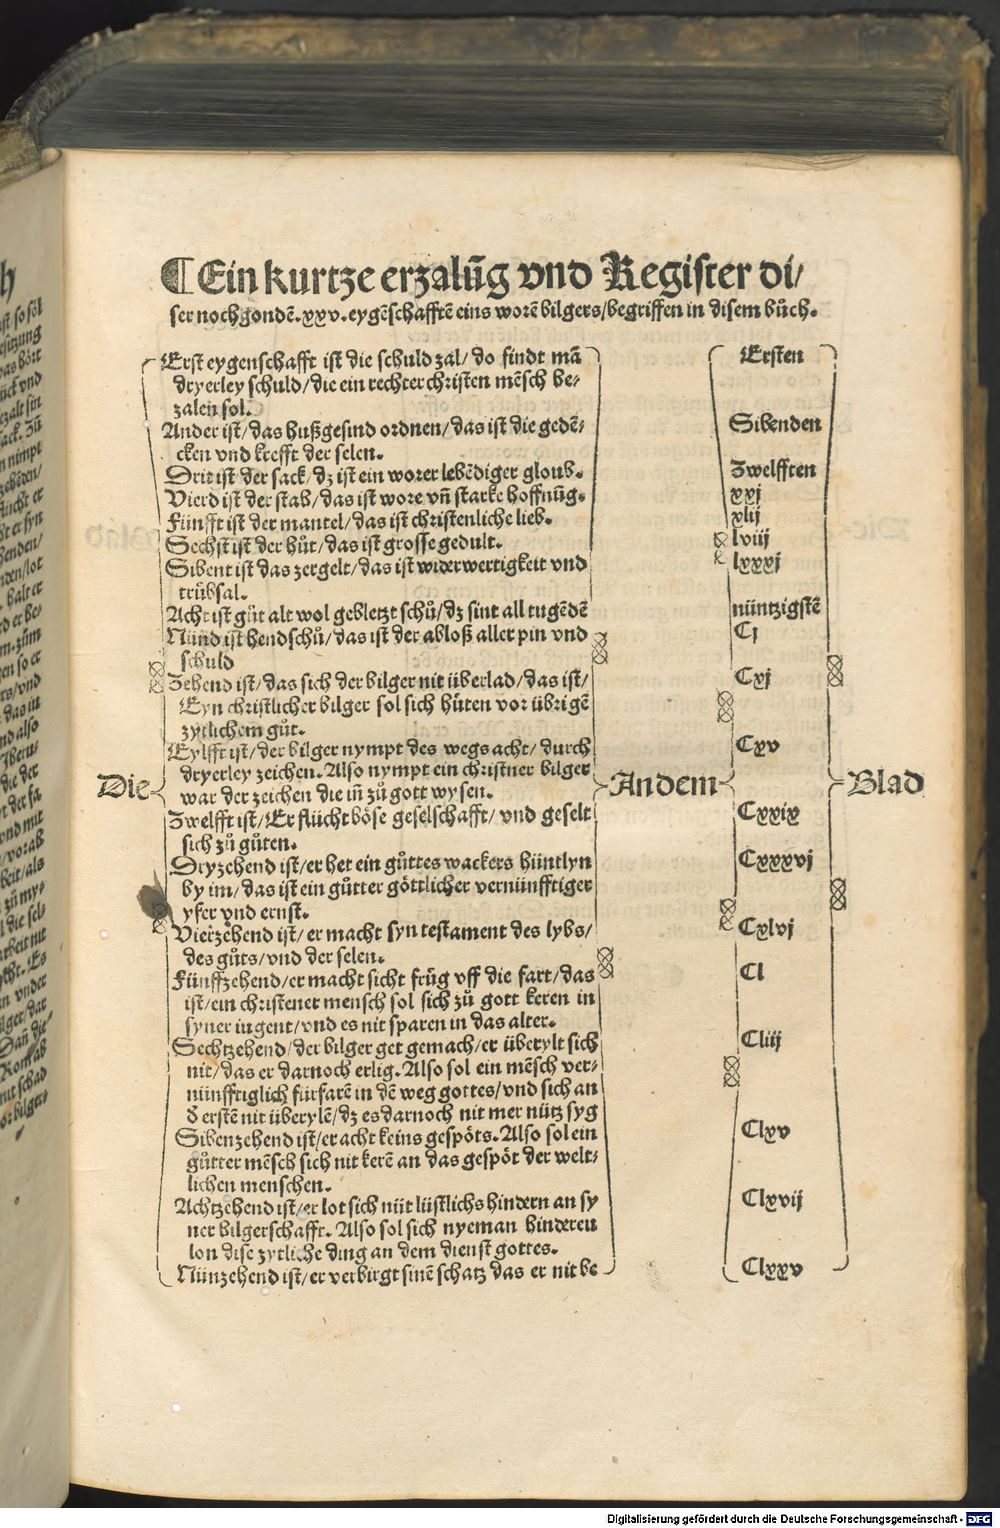 ¶ Ein kurtze erzalūg vnd Register di/
ser nochgondē. xxv. eygēschafftē eins worē bilgers/begriffen in disem bůch.
Erst eygenschafft ist die schuld zal/ do findt mā Ersten
dryerley schuld/die ein rechter christen mēsch be-
zalen sol.
Ander ist/das hußgesind ordnen/das ist die gedē- Sibenden
cken vnd krefft der selen.
Drit ist der sack/ dz ist ein worer lebēdiger gloub. Zwelfften
Vierd ist der stab/das ist wore vn̄ starke hoffnūg. xxj
Fünfft ist der mantel/das ist christenliche lieb. xlij
Sechst ist der hůt/das ist grosse gedult. lviij
Sibent ist das zergelt/das ist widerwertigkeit vnd lxxxj
trübsal.
Acht ist gůt alt wol gebletzt schů/dz sint all tugēdē nüntzigstē
Nünd ist hendschů/das ist der abloß aller pin vnd Cj
schuld
Zehend ist/das sich der bilger nit überlad/das ist/ Cxj
Eyn christlicher bilger sol sich hüten vor übrigē
zytlichem gůt.
Eylfft ist/der bilger nympt des wegs acht/ durch Cxv
dryerley zeichen. Also nympt ein christner bilger
Die war der zeichen die in̄ zů gott wysen. Andem Blad
Zwelfft ist/Er flücht böse geselschafft/ vnd geselt Cxxix
sich zů gůten.
Dryzehend ist/er het ein gůttes wackers hüntlyn Cxxxvj
by im/das ist ein gůtter göttlicher vernünfftiger
yfer vnd ernst.
Vierzehend ist/er macht syn testament des lybs/ Cxlvj
des gůts/vnd der selen.
Fünffzehend/er macht sicht früg vff die fart/das Cl
ist/ein christener mensch sol sich zů gott keren in
syner iugent/vnd es nit sparen in das alter.
Sechtzehend/der bilger get gemach/er überylt sich Cliij
nit/das er darnoch erlig. Also sol ein mēsch ver-
nünfftiglich fürfarē in dē weg gottes/vnd sich an
d erstē nit überylē/dz es darnoch nit mer nütz syg
Sibenzehend ist/er acht keins gespöts. Also sol ein Clxv
gůtter mēsch sich nit kerē an das gespöt der welt-
lichen menschen.
Achtzehend ist/er lot sich nüt lüstlichs hindern an sy Clxvij
ner bilgerschafft. Also sol sich nyeman hinderen
lon dise zytliche ding an dem dienst gottes.
Nünzehend ist/er verbirgt sinē schatz das er nit be Clxxv
Digitalisierung gefördert durch die Deutsche Forschungsgemeinschaft - DFG